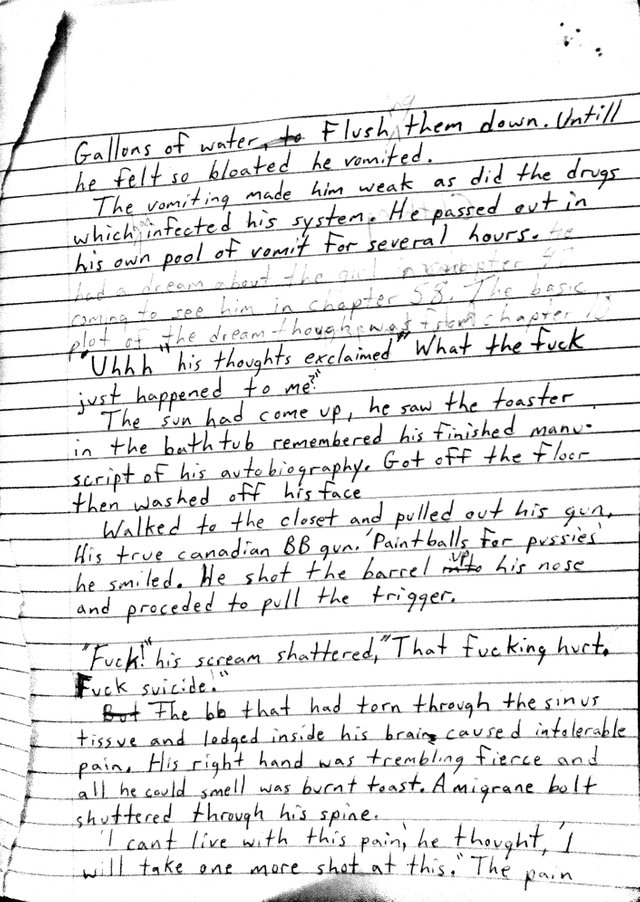 Gallons of water, to Flushing them down. Untill
he felt so bloated he vomited.
The vomiting made him weak as did the drugs
which infected his system. He passed out in
his own pool of vomit for several hours. He
had a dream about the girl
coming to see him in chapter 58. The basic
plot of the dream though was from chapter
"Uhhh" his thoughts exclaimed "What the fuck
just happened to me?"
The sun had come up, he saw the toaster
in the bathtub remembered his finished manu-
script of his autobiography. Got off the floor
then washed off his face
Walked to the closet and pulled out his gun.
His true canadian BB gun. 'Paintballs for pussies'
he smiled. He shot the barrel into up his nose
and proceded to pull the trigger.
"Fuck!" his scream shattered, "That fucking hurt.
Fuck suicide."
But The bb that had torn through the sinus
tissue and lodged inside his brain caused intolerable
pain. His right hand was trembling fierce and
all he could smell was burnt toast. A migrane bolt
shuttered through his spine.
'I cant live with this pain', he thought, 'I
will take one more shot at this." The pain